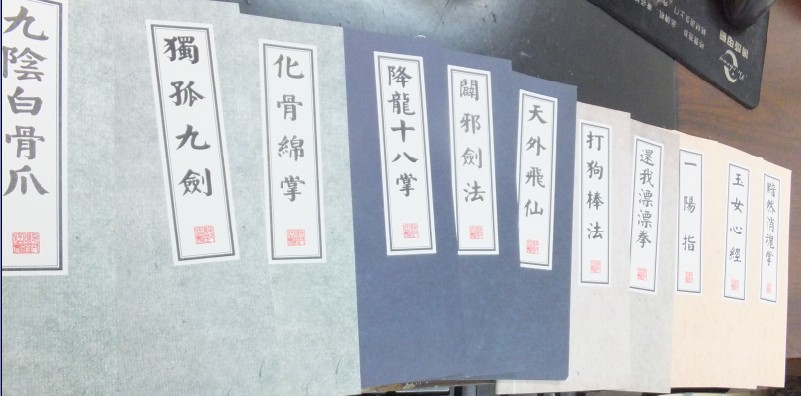 九陰白骨爪
獨孤九劍
化骨綿掌
降龍十八掌
闢邪劍法
天外飛仙
打狗棒法
還我漂漂拳
一陽指
玉女心經
黯然消魂掌